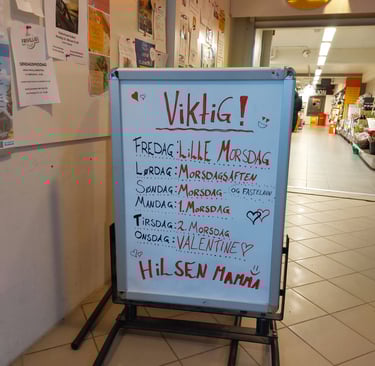 ViktiG!
FREDAG: LILLE MORSDAG
LØRDAG: MORSDAGSAFTEN
SØNDAG: MORSDAG OG FASTELAVN
MANDAG: 1. MORSDAG
TIRSDAG: 2. MORSDAG
ONSDAG: VALENTINE
HiLSEN MAMMA